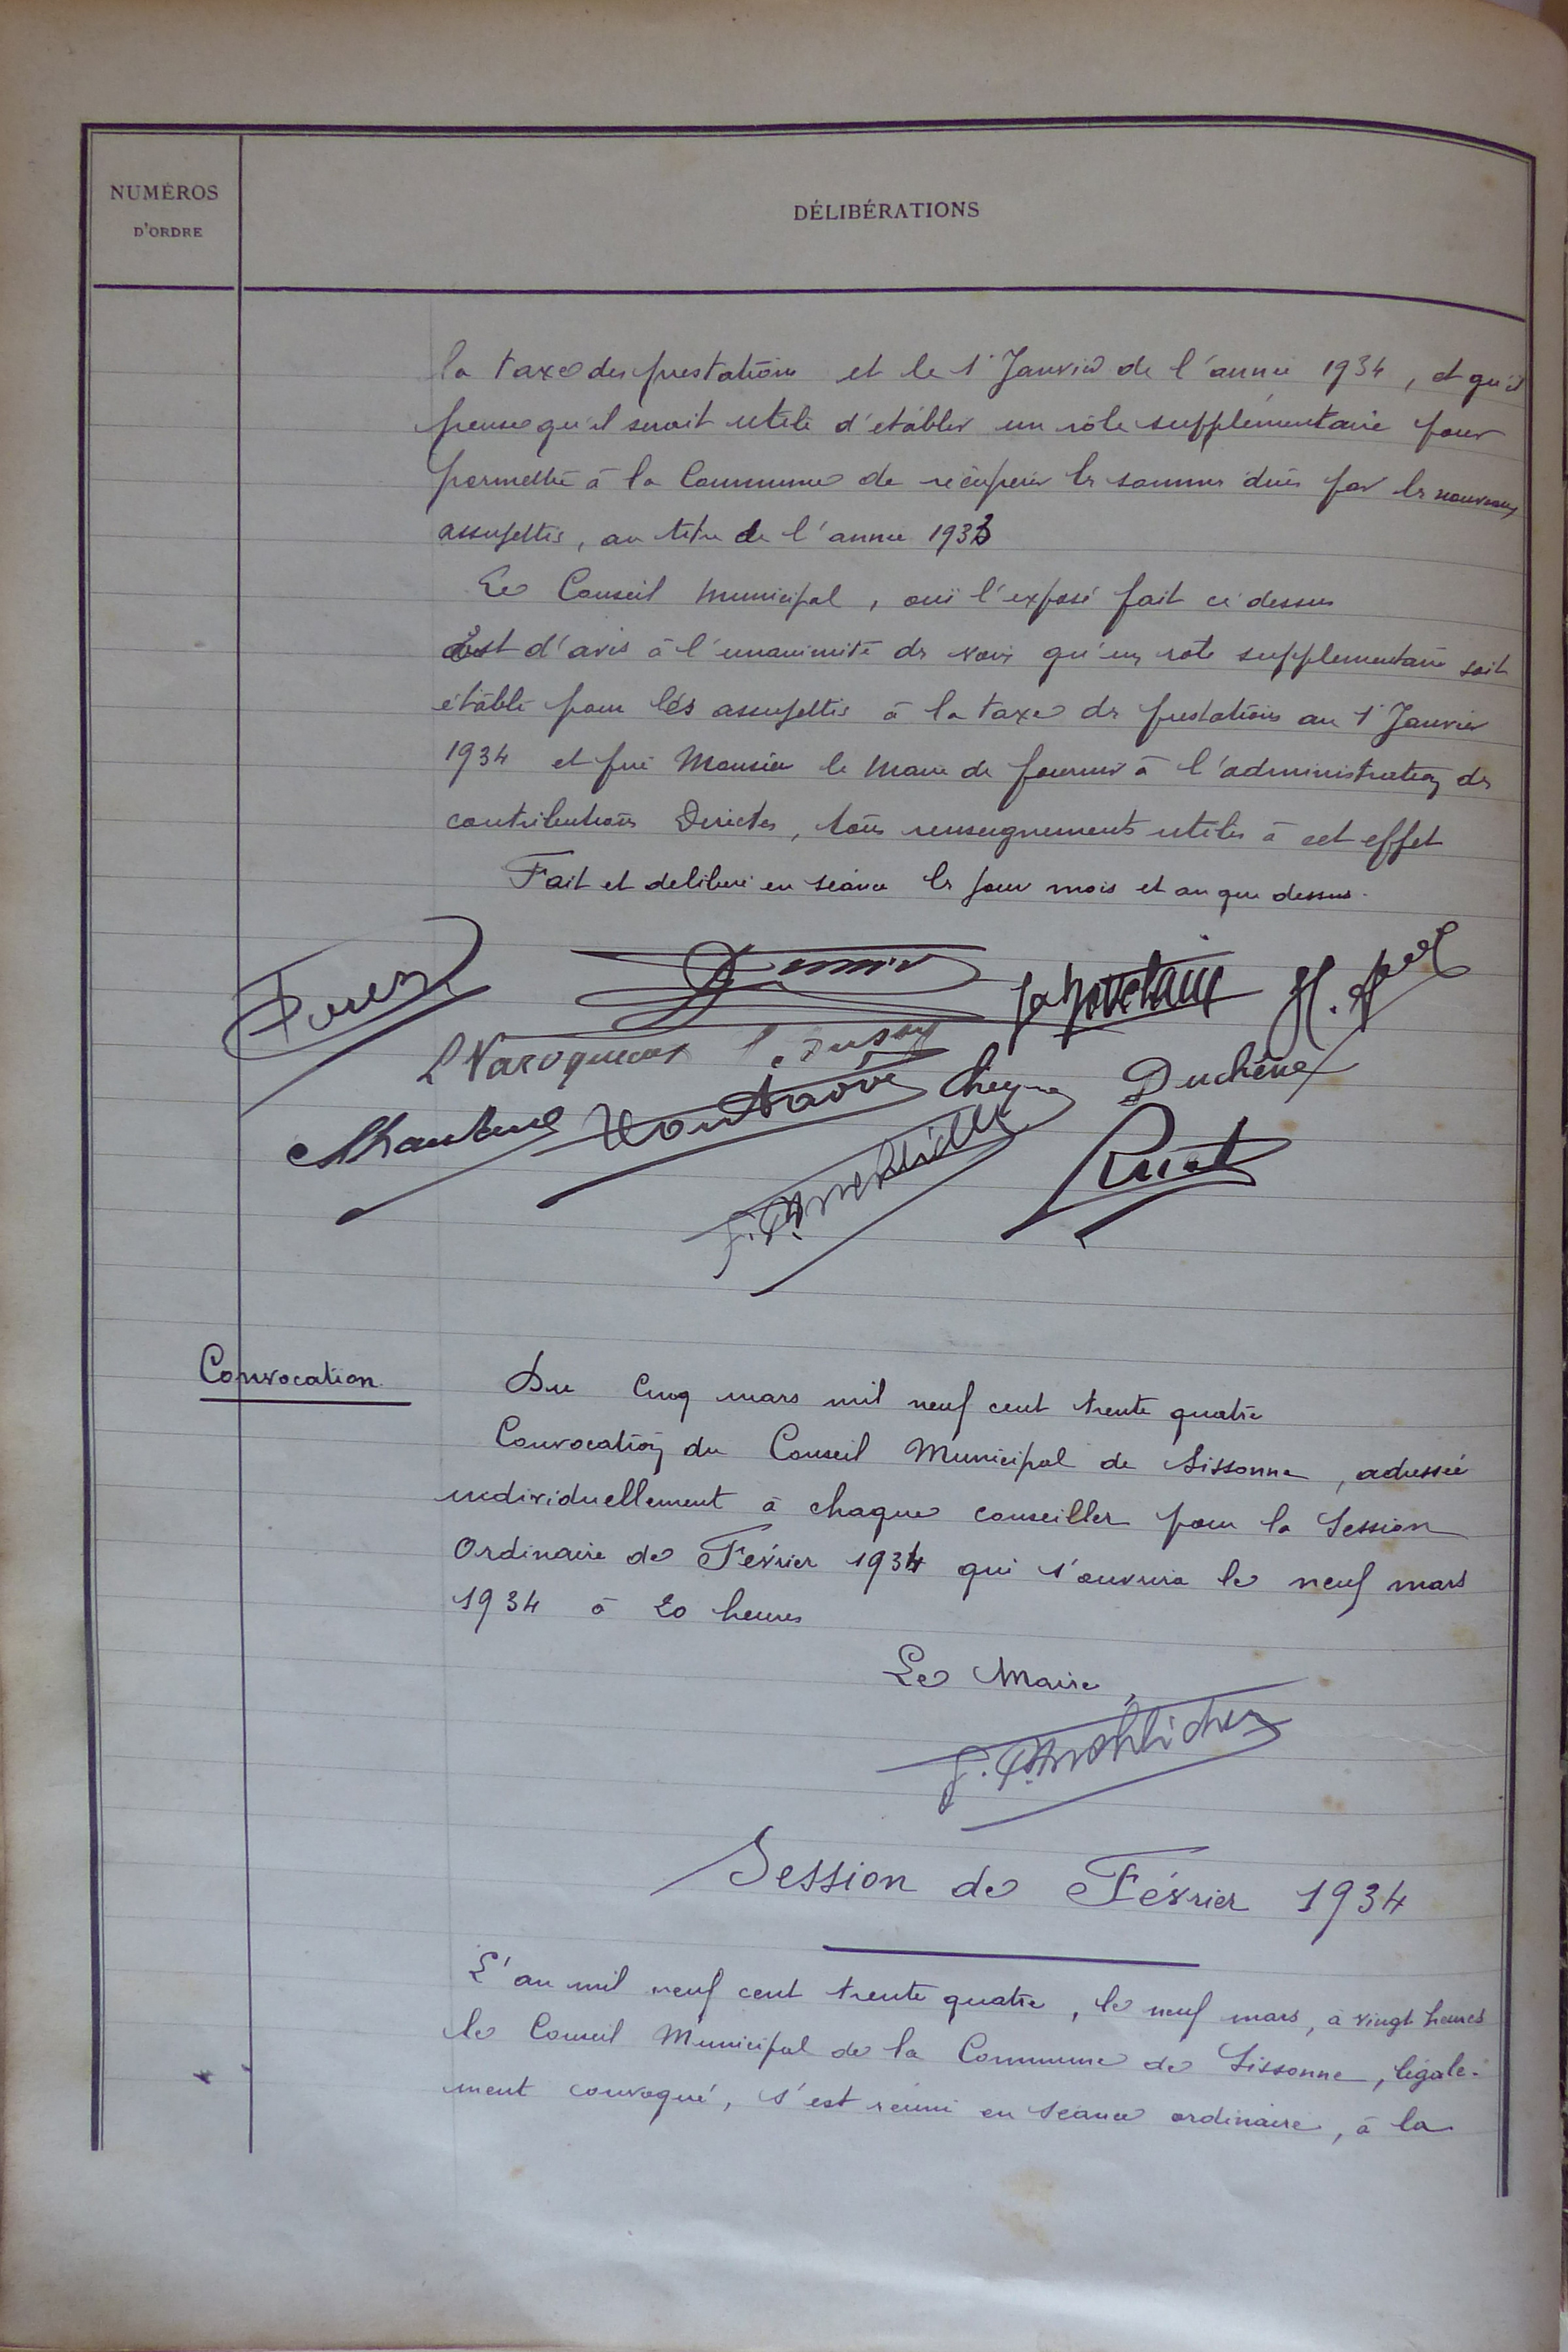 NUMÉROS
D'ORDRE
DÉLIBÉRATIONS
la taxe des prestations et le 1er Janvier de l'année 1934, et qu'il
pense qu'il serait utile d'établir un rôle supplémentaire pour
permettre à la Commune de récupérer les sommes dues par les nouveaux
assujettis, au titre de l'année 1933
Le Conseil Municipal, ouï l'exposé fait ci dessus
Est d'avis à l'unanimité des voix qu'un role supplementaire soit
établi pour les assujettis à la taxe des prestations au 1er Janvier
1934 et prie Monsieur le Maire de fournir à l'administration des
contributions Directes, tous renseignements utiles à cet effet
Fait et délibéré en séance les jour mois et an que dessus.
L Varoqueaux
Duchêne
Convocation
Du Cinq mars mil neuf cent trente quatre
Convocation du Conseil Municipal de Sissonne, adressée
individuellement à chaque conseiller pour la Session
Ordinaire de Février 1934 qui s'ouvrira le neuf mars
1934 à 20 heures
Le Maire,
Session de Février 1934
L'an mil neuf cent trente quatre, le neuf mars, à vingt heures
le Conseil Municipal de la Commune de Sissonne, légale-
ment convoqué, s'est réuni en séance ordinaire, à la